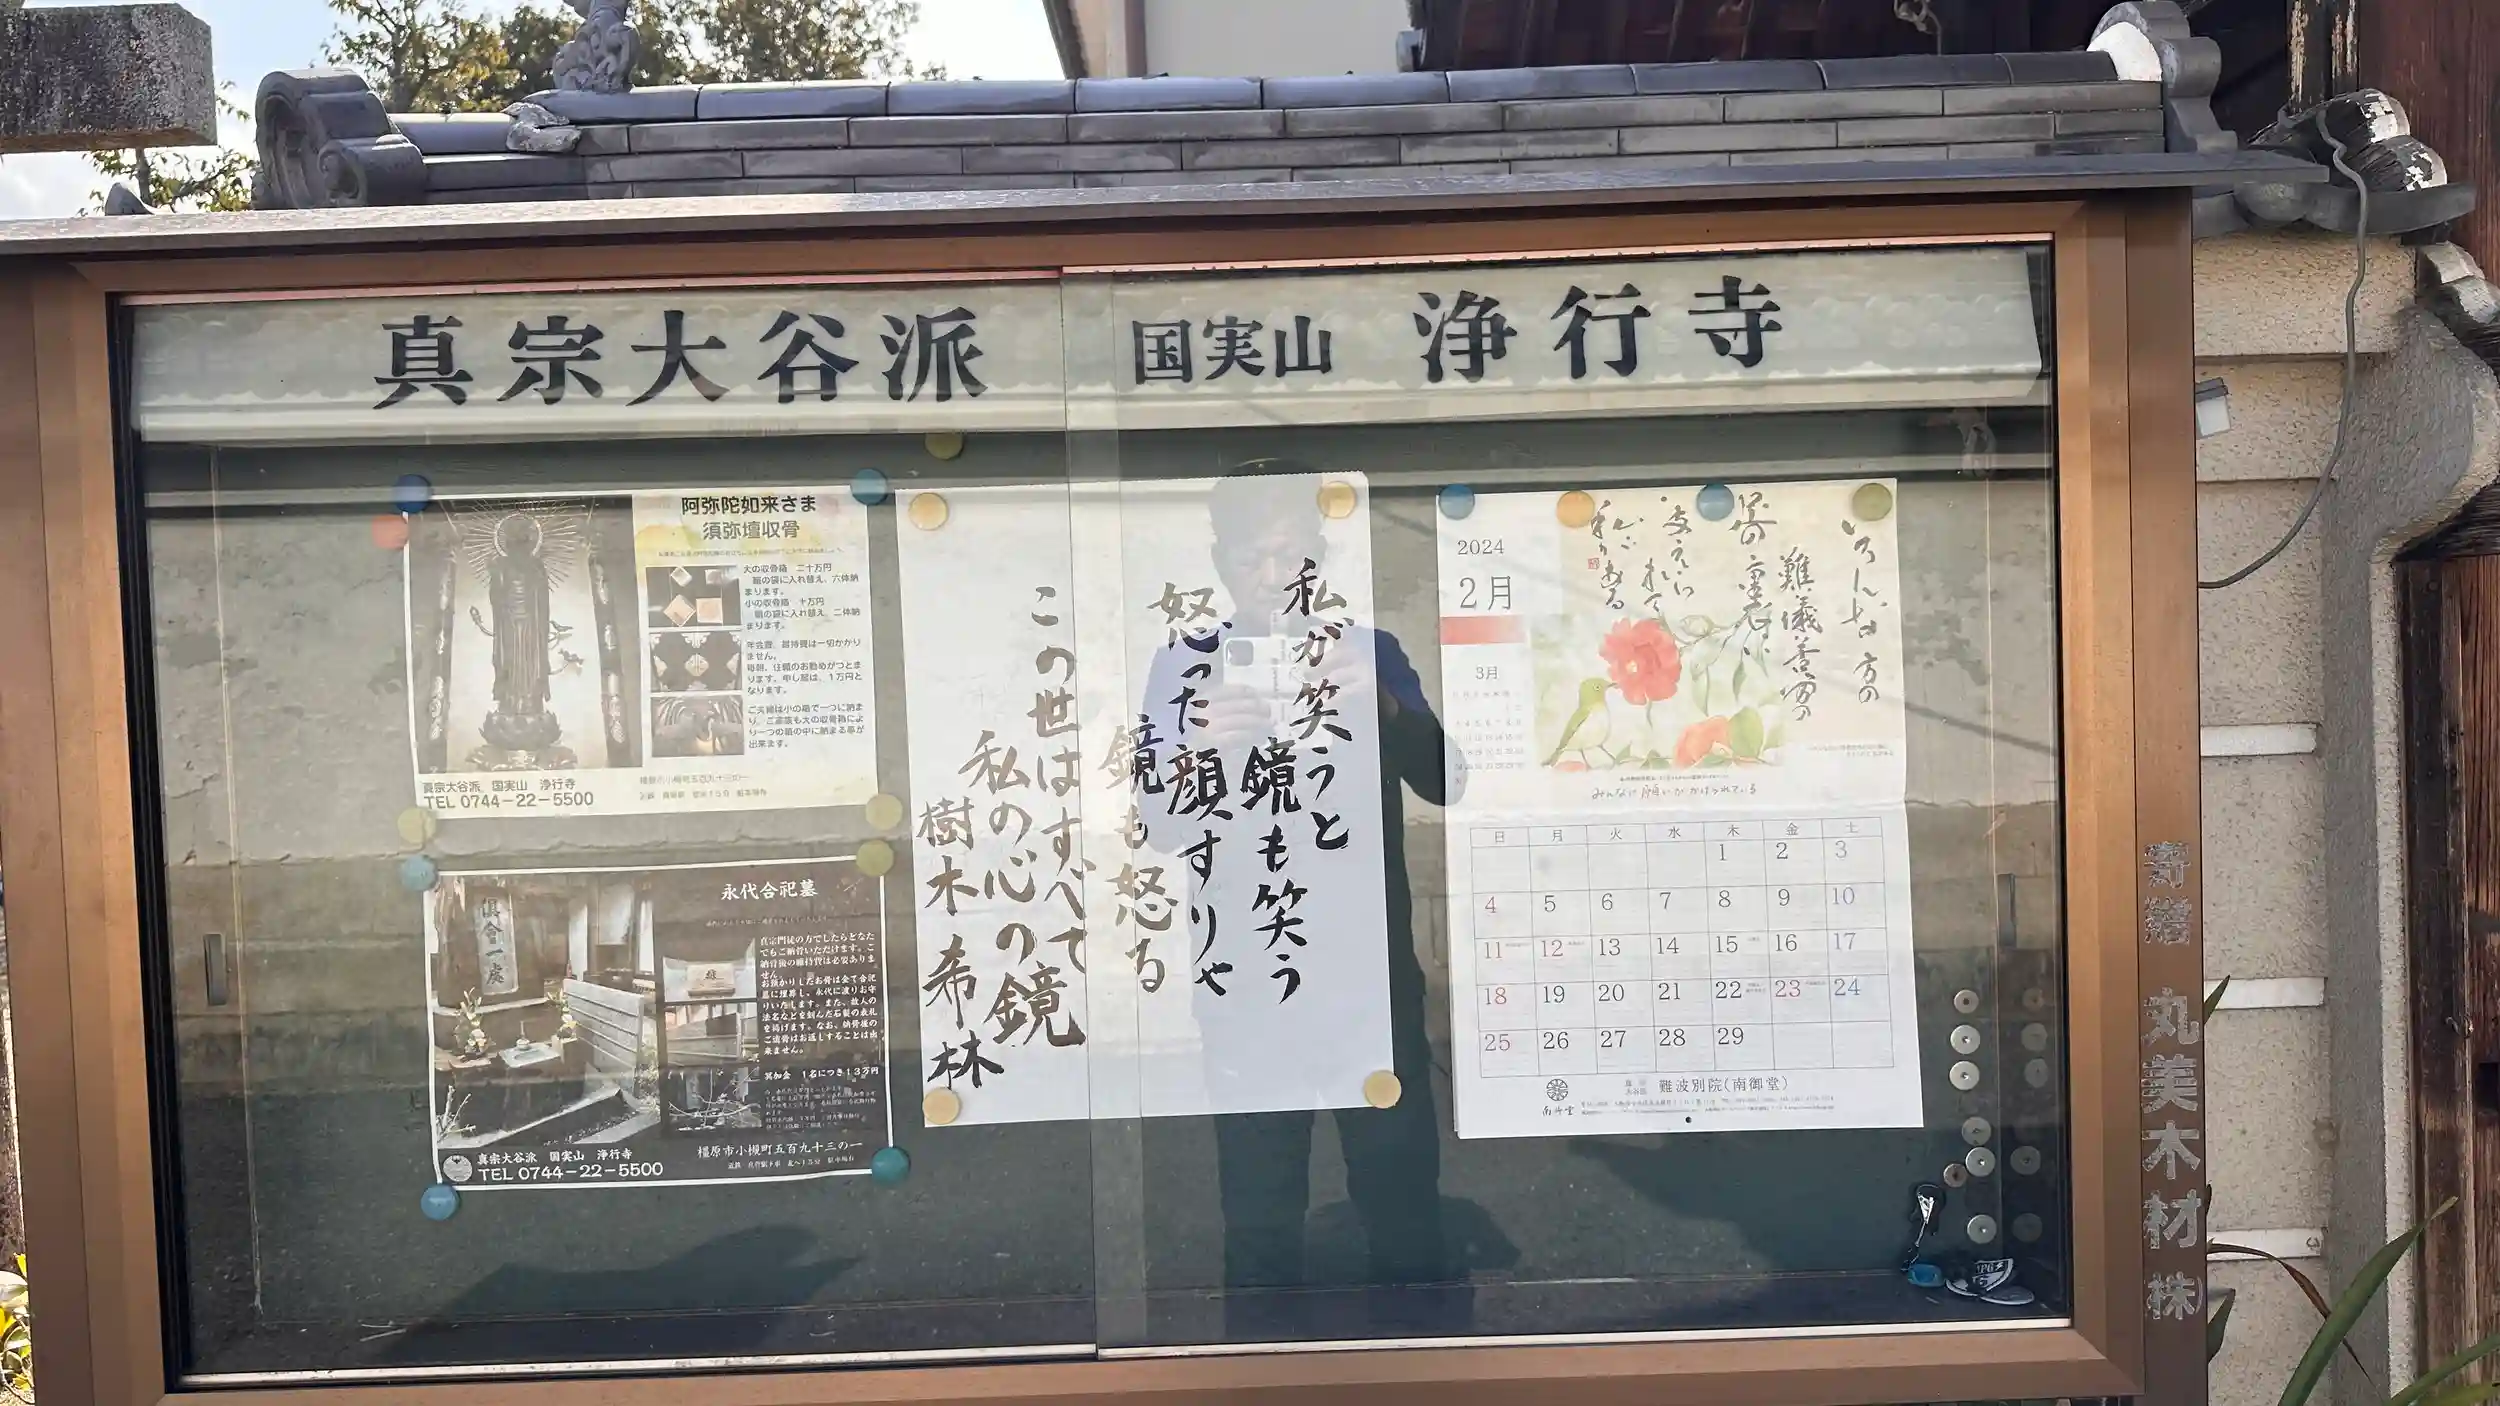 真宗大谷派 国実山 浄行寺
阿弥陀如来さま
須弥壇収骨
大の収骨箱 二十万円
箱の袋に入れ替え、六体納
まります。
小の収骨箱 十万円
箱の袋に入れ替え、二体納
まります。
年会費、維持費は一切かかり
ません。
毎朝、住職のお勤めがつとま
ります。申し経は、1万円と
なります。
ご夫婦は小の箱で一つに納ま
り、ご家族も大の収骨箱によ
り一つの箱の中に納まる事が
出来ます。
真宗大谷派 国実山 浄行寺
TEL 0744-22-5500
永代合祀墓
倶会一處
真宗門徒の方でしたらどなた
でもご納骨いただけます。こ
納骨後の維持費は必要ありま
せん。
お預かりしたお骨は全て合祀
墓に埋葬し、永代に渡りお守
りいたします。また、故人の
法名などを刻んだ石製の表札
を掲げます。なお、納骨後の
ご遺骨はお返しすることは出
来ません。
冥加金 1名につき13万円
真宗大谷派 国実山 浄行寺
TEL 0744-22-5500
橿原市小槻町五百九十三の一
私が笑うと
鏡も笑う
怒った顔すりゃ
鏡も怒る
この世はすべて
私の心の鏡
樹木希林
2024
2月
3月
いろんな方の
難儀苦労の
私が
みんなに願いがかけられている
日 月 火 水 木 金 土
1 2 3
4 5 6 7 8 9 10
11 12 13 14 15 16 17
18 19 20 21 22 23 24
25 26 27 28 29
南御堂
難波別院(南御堂)
寄贈 丸美木材㈱